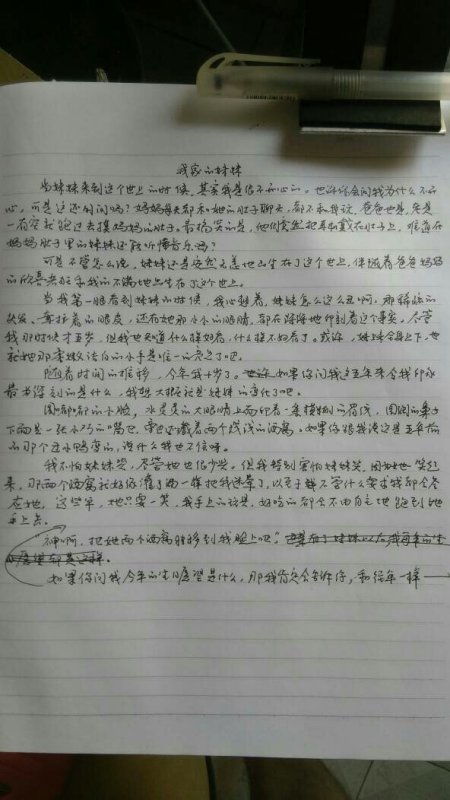 我家的妹妹
当妹妹来到这个世上的时候,其实我是很不开心的。也许你会问我为什么不开
心,可是这还用问吗?妈妈每天都和她的肚子聊天,都不和我说,爸爸也是,老是
一有空就跑过去摸妈妈的肚子。最搞笑的是,他们竟然把耳机戴在肚子上,难道在
妈妈肚子里的妹妹还能听懂音乐吗?
可是不管怎么说,妹妹还是安然无恙地出生在了这个世上,伴随着爸爸妈妈
的欣喜若狂和我的不满地出生在了这个世上。
当我第一眼看到妹妹的时候,我心想着,妹妹怎么这么丑啊,那稀疏的
头发、耷拉着的眼皮,还有她那小小的眼睛,都在深深地印刻着这个事实。尽管
我那时候才五岁,但我也知道什么样好看,什么样不好看了。或许,妹妹全身上下,也
就她那掌嫩洁白的小手是唯一的亮点了吧。
随着时间的推移,今年我十岁了。如果你问我这五年来令我印象
最为深刻的是什么,我想大概就是妹妹的变化了吧。
圆嘟嘟的小脸,水灵灵的大眼睛上面印着一条的眉线,圆圆的鼻子
下面是一张小巧的嘴巴,旁边还藏着两个浅浅的酒窝。如果你跟我说这是五年前
的那个丑小鸭变的,说什么我也不信呀。
我不怕妹妹哭,尽管她也很少哭。但我特别害怕妹妹笑,因为她一笑起
来,那两个酒窝就好像灌了酒一样把我迷晕了,以至于无论什么要求我都会答
应她,这些年,她只要一笑,我手上的玩具,好吃的都会不由自主地跑到她
手上去。
神啊,把她两个酒窝转移到我脸上吧!
如果你问我今年的生日愿望是什么,那我肯定会告诉你,和往年一样——